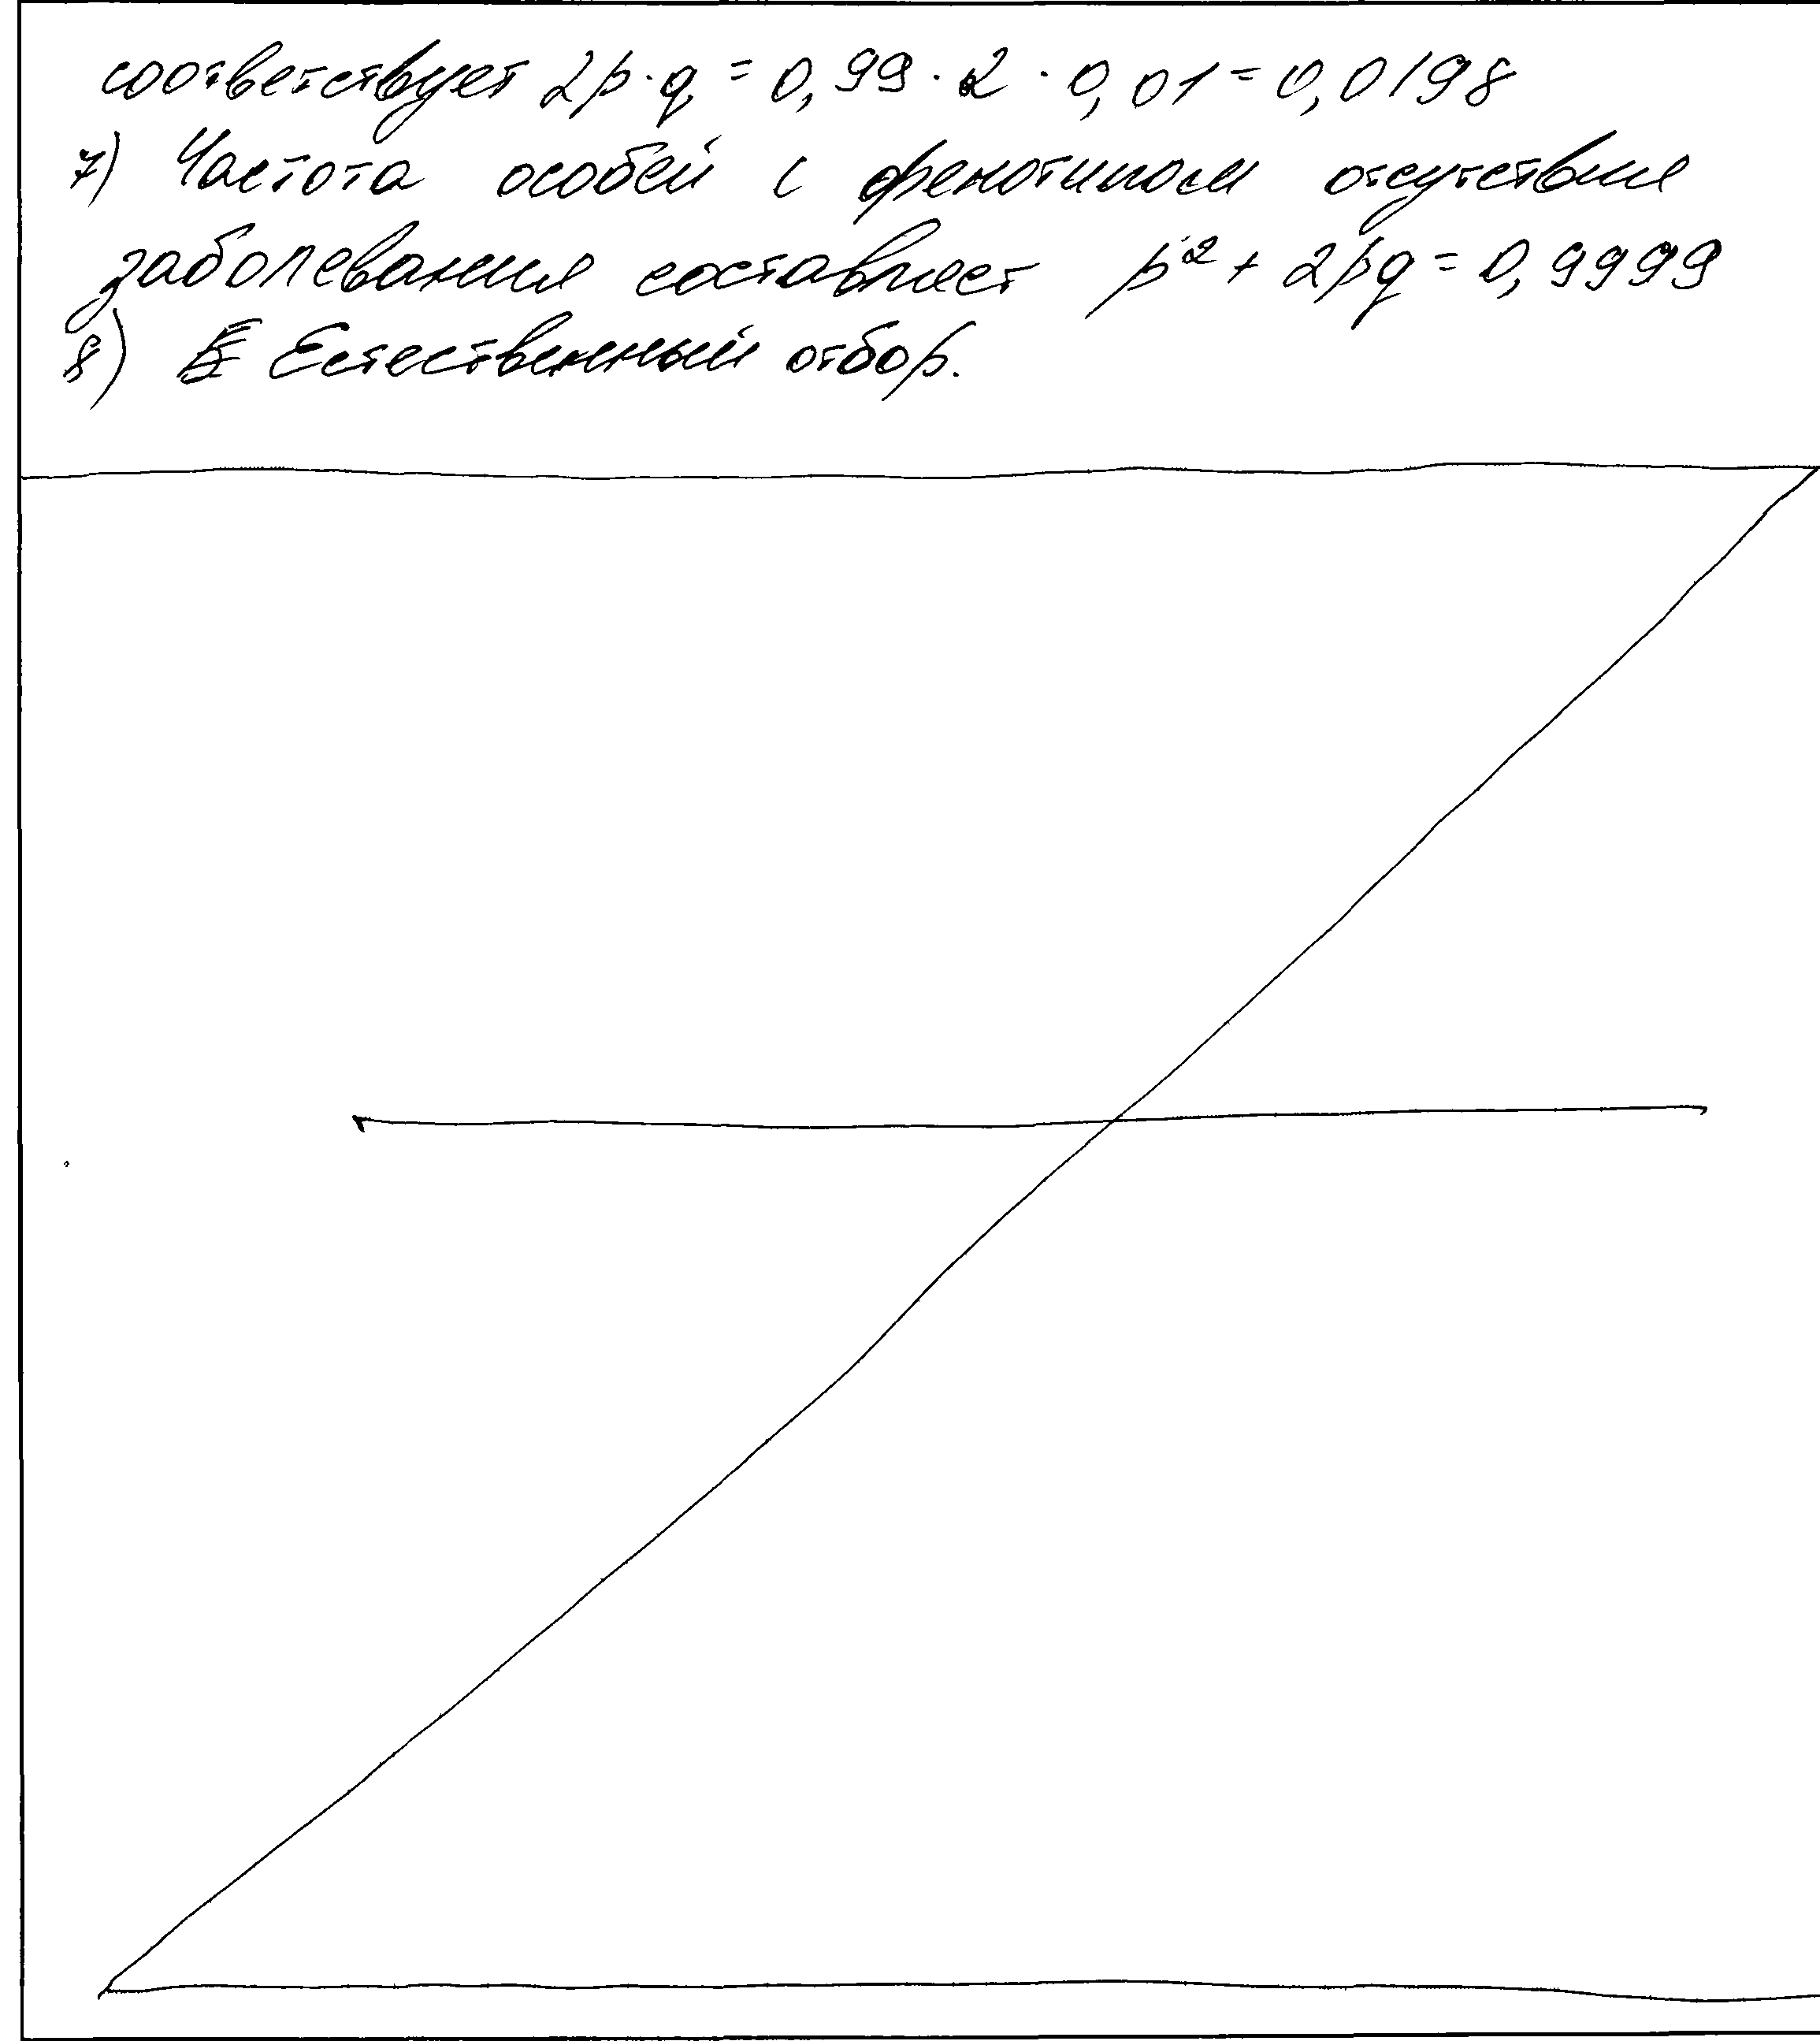 соответствует 2p·q = 0,99 · 2 · 0,01 = 0,0198
7) Частота особей с фенотипом отсутствия
заболевания составляет p² + 2pq = 0,9999
8) Естественный отбор.